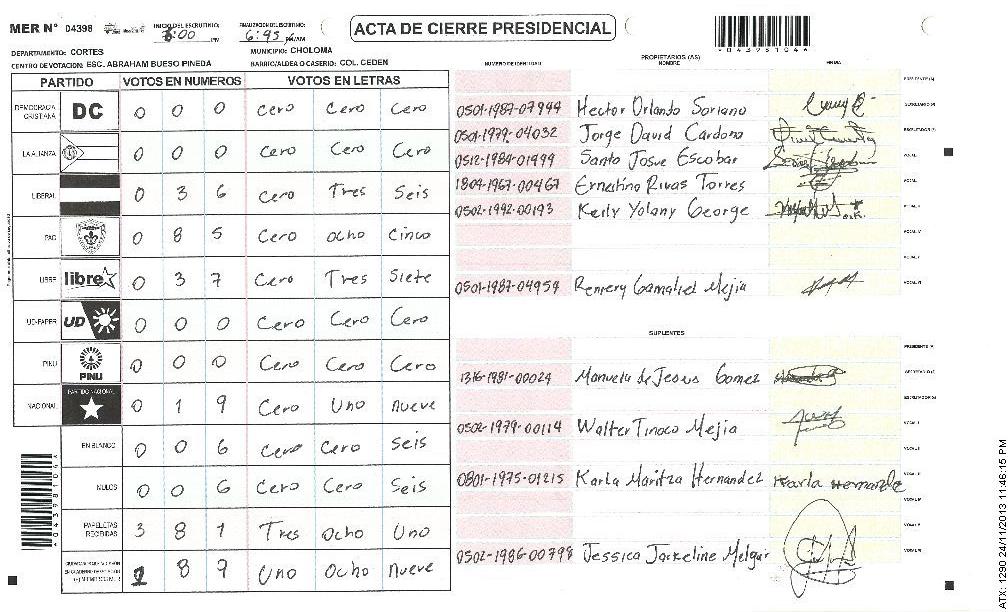 MER N° 04398
INICIO DEL ESCRUTINIO: 3:00 PM
FINALIZACION DEL ESCRUTINIO: 6:45 PM/AM
ACTA DE CIERRE PRESIDENCIAL
*04398104*
DEPARTAMENTO: CORTES MUNICIPIO: CHOLOMA
CENTRO DE VOTACION: ESC. ABRAHAM BUESO PINEDA BARRIO/ALDEA O CASERIO: COL. CEDEN
PARTIDO VOTOS EN NUMEROS VOTOS EN LETRAS
DEMOCRACIA CRISTIANA DC 0 0 0 Cero Cero Cero
LA ALIANZA 0 0 0 Cero Cero Cero
LIBERAL 0 3 6 Cero Tres Seis
PAC 0 8 5 Cero ocho Cinco
LIBRE libre 0 3 7 Cero Tres Siete
UD-FAPER UD 0 0 0 Cero Cero Cero
PINU PINU 0 0 0 Cero Cero Cero
NACIONAL PARTIDO NACIONAL 0 1 9 Cero Uno nueve
EN BLANCO 0 0 6 Cero Cero Seis
NULOS 0 0 6 Cero Cero Seis
PAPELETAS RECIBIDAS 3 8 1 Tres ocho Uno
1 8 9 Uno Ocho nueve
NUMERO DE IDENTIDAD PROPIETARIOS (AS) NOMBRE FIRMA
0501-1987-07944 Hector Orlando Soriano
0501-1979-04032 Jorge David Cardona
0512-1984-01999 Santo Josue Escobar
1804-1967-00467 Ernestino Rivas Torres
0502-1992-00193 Kerly Yolany George
0501-1987-04954 Remery Gamaliel Mejia
SUPLENTES
1316-1981-00024 Manuela de Jesus Gomez
0502-1979-00114 Walter Tinoco Mejia
0801-1975-01215 Karla Maritza Hernandez Karla Hernandez
0502-1986-00798 Jessica Jackeline Melgar
*04398104*
ATX: 1290 24/11/2013 11:46:15 PM